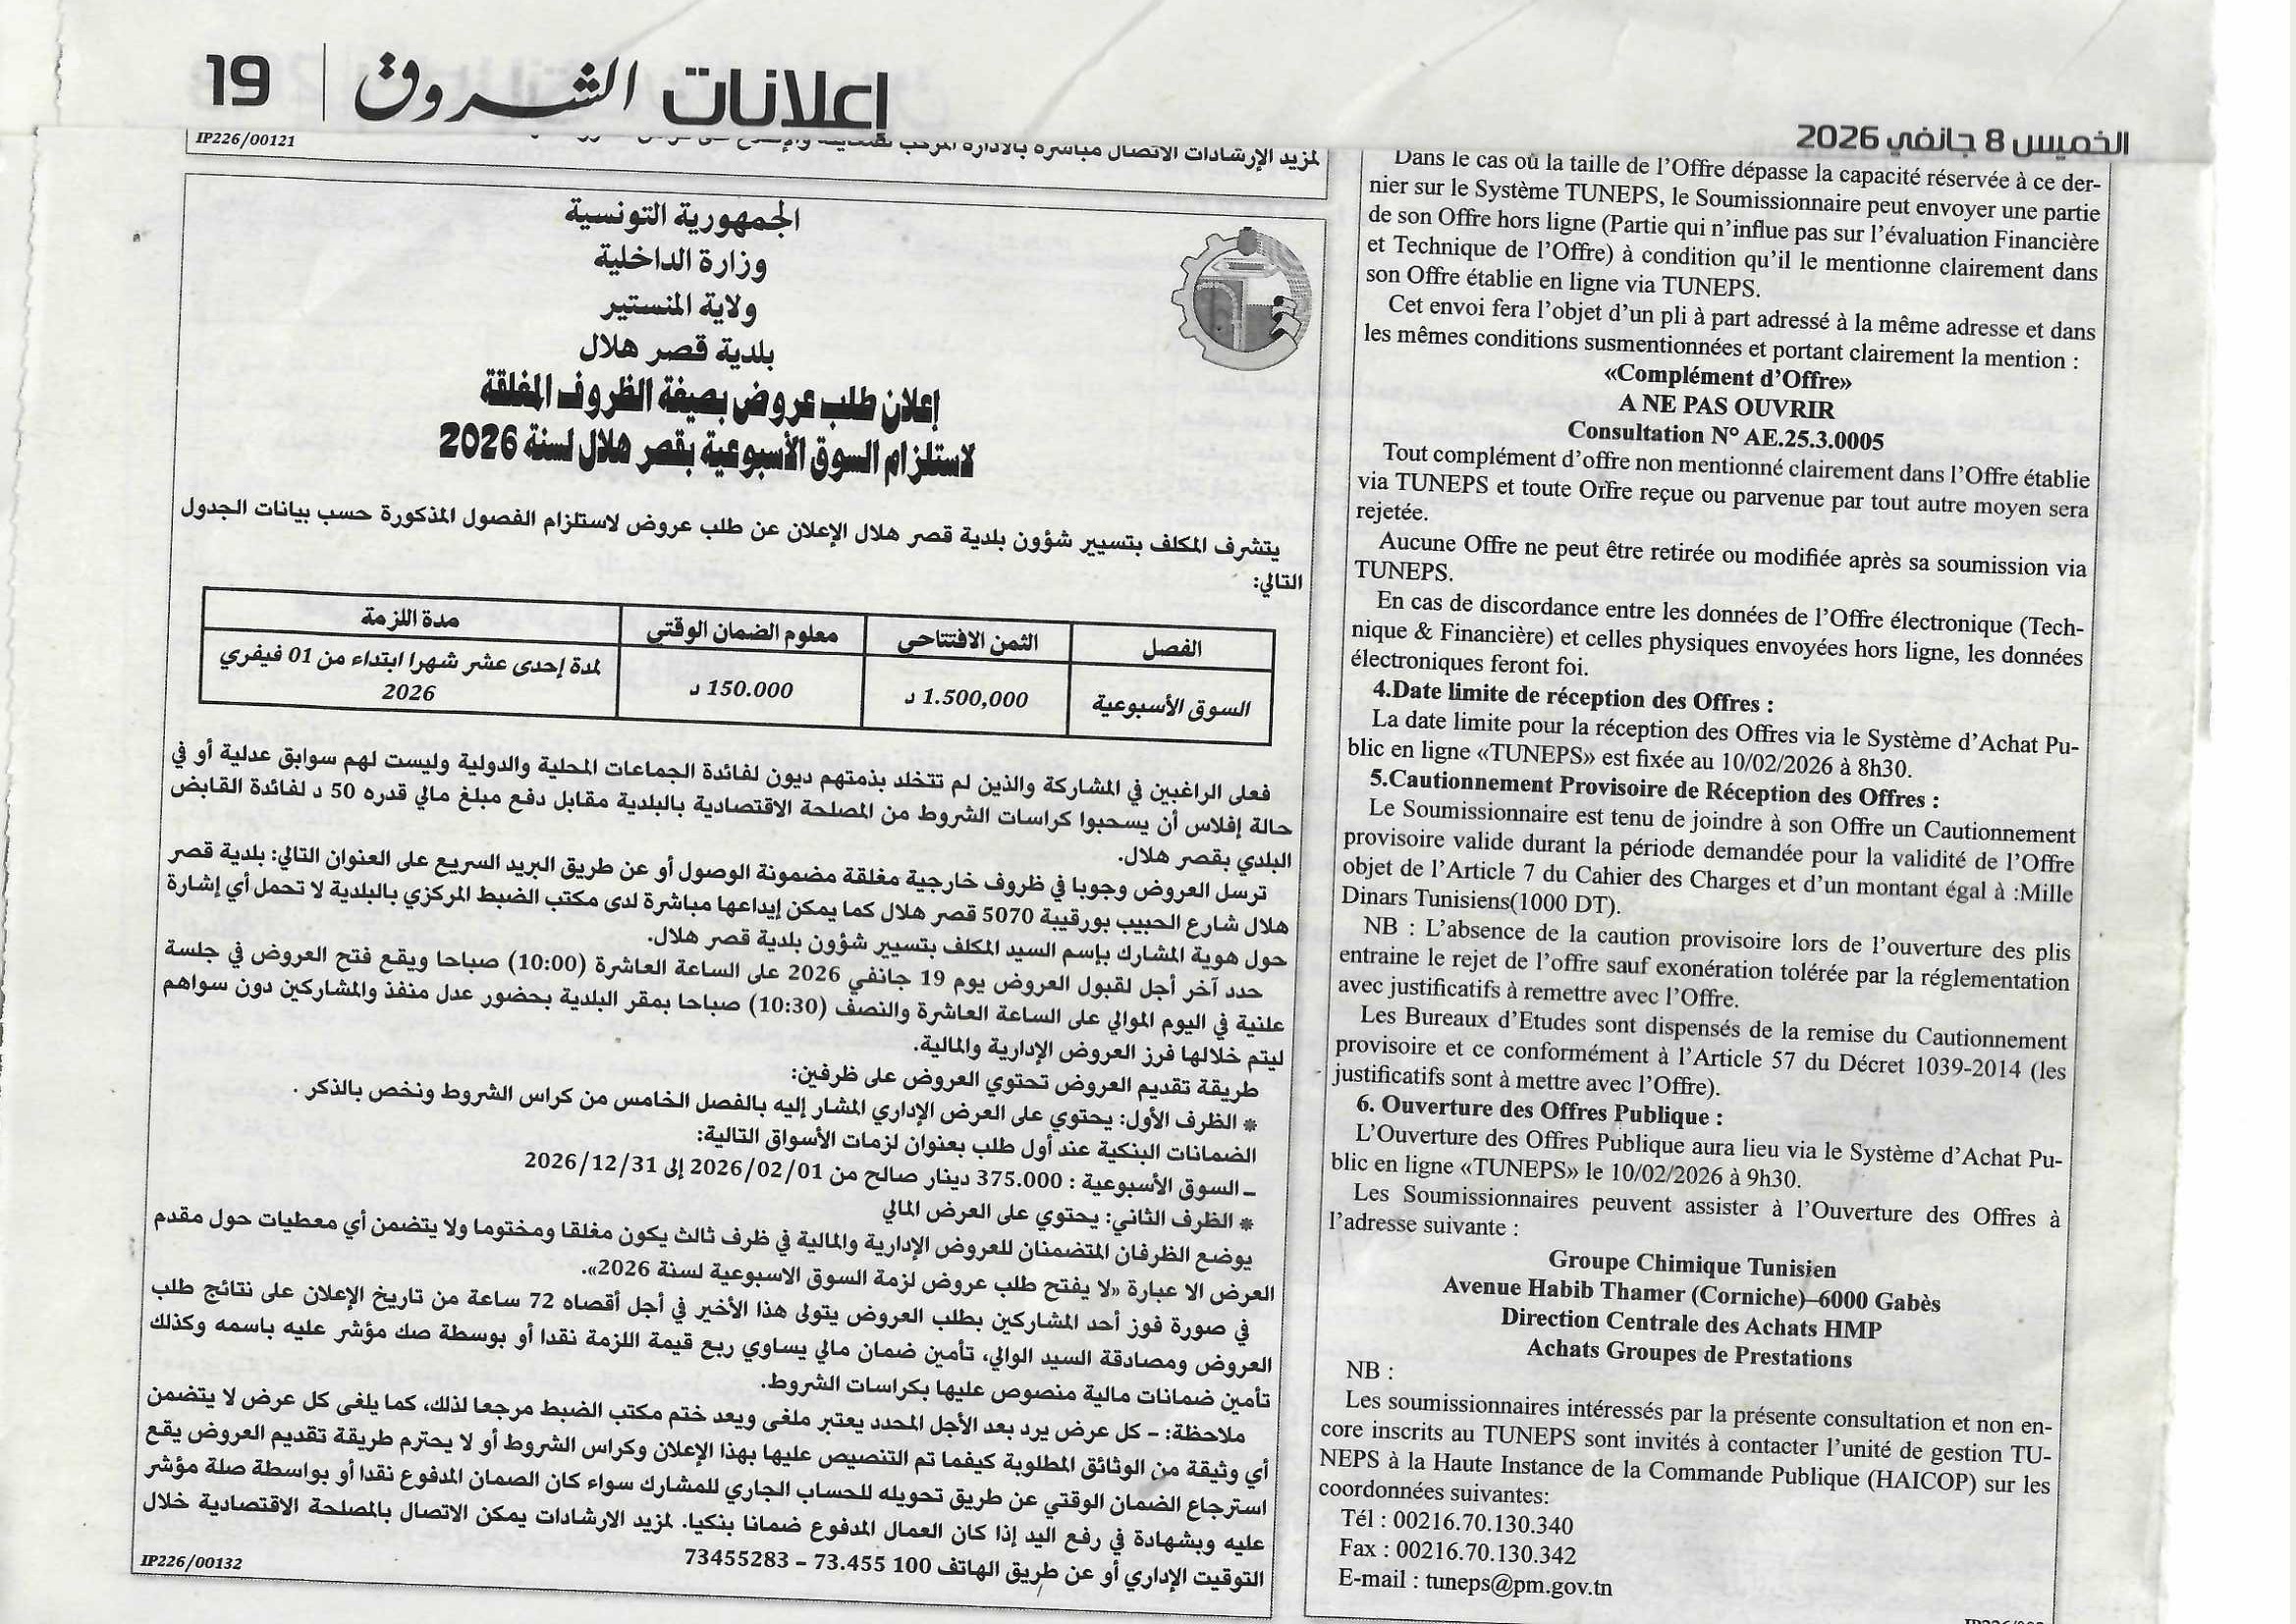 19
إعلانات الشروق
الخميس 8 جانفي 2026
IP226/00121
لمزيد الإرشادات الاتصال مباشرة بالادارة
الجمهورية التونسية
وزارة الداخلية
ولاية المنستير
بلدية قصر هلال
إعلان طلب عروض بصيغة الظروف المغلقة
لاستلزام السوق الأسبوعية بقصر هلال لسنة 2026
يتشرف المكلف بتسيير شؤون بلدية قصر هلال الإعلان عن طلب عروض لاستلزام الفصول المذكورة حسب بيانات الجدول
التالي:
الفصل الثمن الافتتاحي معلوم الضمان الوقتي مدة اللزمة
السوق الأسبوعية 1.500,000 د 150.000 د لمدة إحدى عشر شهرا ابتداء من 01 فيفري
2026
فعلى الراغبين في المشاركة والذين لم تتخلد بذمتهم ديون لفائدة الجماعات المحلية والدولية وليست لهم سوابق عدلية أو في
حالة إفلاس أن يسحبوا كراسات الشروط من المصلحة الاقتصادية بالبلدية مقابل دفع مبلغ مالي قدره 50 د لفائدة القابض
البلدي بقصر هلال.
ترسل العروض وجوبا في ظروف خارجية مغلقة مضمونة الوصول أو عن طريق البريد السريع على العنوان التالي: بلدية قصر
هلال شارع الحبيب بورقيبة 5070 قصر هلال كما يمكن إيداعها مباشرة لدى مكتب الضبط المركزي بالبلدية لا تحمل أي إشارة
حول هوية المشارك بإسم السيد المكلف بتسيير شؤون بلدية قصر هلال.
حدد آخر أجل لقبول العروض يوم 19 جانفي 2026 على الساعة العاشرة (10:00) صباحا ويقع فتح العروض في جلسة
علنية في اليوم الموالي على الساعة العاشرة والنصف (10:30) صباحا بمقر البلدية بحضور عدل منفذ والمشاركين دون سواهم
ليتم خلالها فرز العروض الإدارية والمالية.
طريقة تقديم العروض تحتوي العروض على ظرفين:
* الظرف الأول: يحتوي على العرض الإداري المشار إليه بالفصل الخامس من كراس الشروط ونخص بالذكر .
الضمانات البنكية عند أول طلب بعنوان لزمات الأسواق التالية:
– السوق الأسبوعية : 375.000 دينار صالح من 2026/02/01 إلى 2026/12/31
* الظرف الثاني: يحتوي على العرض المالي
يوضع الظرفان المتضمنان للعروض الإدارية والمالية في ظرف ثالث يكون مغلقا ومختوما ولا يتضمن أي معطيات حول مقدم
العرض الا عبارة «لا يفتح طلب عروض لزمة السوق الاسبوعية لسنة 2026».
في صورة فوز أحد المشاركين بطلب العروض يتولى هذا الأخير في أجل أقصاه 72 ساعة من تاريخ الإعلان على نتائج طلب
العروض ومصادقة السيد الوالي، تأمين ضمان مالي يساوي ربع قيمة اللزمة نقدا أو بوسطة صك مؤشر عليه باسمه وكذلك
تأمين ضمانات مالية منصوص عليها بكراسات الشروط.
ملاحظة: – كل عرض يرد بعد الأجل المحدد يعتبر ملغى ويعد ختم مكتب الضبط مرجعا لذلك، كما يلغى كل عرض لا يتضمن
أي وثيقة من الوثائق المطلوبة كيفما تم التنصيص عليها بهذا الإعلان وكراس الشروط أو لا يحترم طريقة تقديم العروض يقع
استرجاع الضمان الوقتي عن طريق تحويله للحساب الجاري للمشارك سواء كان الصمان المدفوع نقدا أو بواسطة صلة مؤشر
عليه وبشهادة في رفع اليد إذا كان العمال المدفوع ضمانا بنكيا. لمزيد الارشادات يمكن الاتصال بالمصلحة الاقتصادية خلال
التوقيت الإداري أو عن طريق الهاتف 100 73.455 – 73455283
IP226/00132
Dans le cas où la taille de l’Offre dépasse la capacité réservée à ce der-
nier sur le Système TUNEPS, le Soumissionnaire peut envoyer une partie
de son Offre hors ligne (Partie qui n’influe pas sur l’évaluation Financière
et Technique de l’Offre) à condition qu’il le mentionne clairement dans
son Offre établie en ligne via TUNEPS.
Cet envoi fera l’objet d’un pli à part adressé à la même adresse et dans
les mêmes conditions susmentionnées et portant clairement la mention :
«Complément d’Offre»
A NE PAS OUVRIR
Consultation N° AE.25.3.0005
Tout complément d’offre non mentionné clairement dans l’Offre établie
via TUNEPS et toute Offre reçue ou parvenue par tout autre moyen sera
rejetée.
Aucune Offre ne peut être retirée ou modifiée après sa soumission via
TUNEPS.
En cas de discordance entre les données de l’Offre électronique (Tech-
nique & Financière) et celles physiques envoyées hors ligne, les données
électroniques feront foi.
4.Date limite de réception des Offres :
La date limite pour la réception des Offres via le Système d’Achat Pu-
blic en ligne «TUNEPS» est fixée au 10/02/2026 à 8h30.
5.Cautionnement Provisoire de Réception des Offres :
Le Soumissionnaire est tenu de joindre à son Offre un Cautionnement
provisoire valide durant la période demandée pour la validité de l’Offre
objet de l’Article 7 du Cahier des Charges et d’un montant égal à :Mille
Dinars Tunisiens(1000 DT).
NB : L’absence de la caution provisoire lors de l’ouverture des plis
entraine le rejet de l’offre sauf exonération tolérée par la réglementation
avec justificatifs à remettre avec l’Offre.
Les Bureaux d’Etudes sont dispensés de la remise du Cautionnement
provisoire et ce conformément à l’Article 57 du Décret 1039-2014 (les
justificatifs sont à mettre avec l’Offre).
6. Ouverture des Offres Publique :
L’Ouverture des Offres Publique aura lieu via le Système d’Achat Pu-
blic en ligne «TUNEPS» le 10/02/2026 à 9h30.
Les Soumissionnaires peuvent assister à l’Ouverture des Offres à
l’adresse suivante :
Groupe Chimique Tunisien
Avenue Habib Thamer (Corniche)–6000 Gabès
Direction Centrale des Achats HMP
Achats Groupes de Prestations
NB :
Les soumissionnaires intéressés par la présente consultation et non en-
core inscrits au TUNEPS sont invités à contacter l’unité de gestion TU-
NEPS à la Haute Instance de la Commande Publique (HAICOP) sur les
coordonnées suivantes:
Tél : 00216.70.130.340
Fax : 00216.70.130.342
E-mail : tuneps@pm.gov.tn